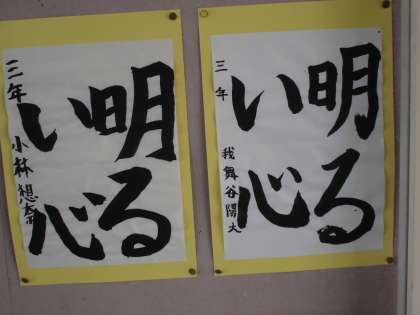 明る
い心
三年 我舞谷陽大
明る
い心
三年 小林